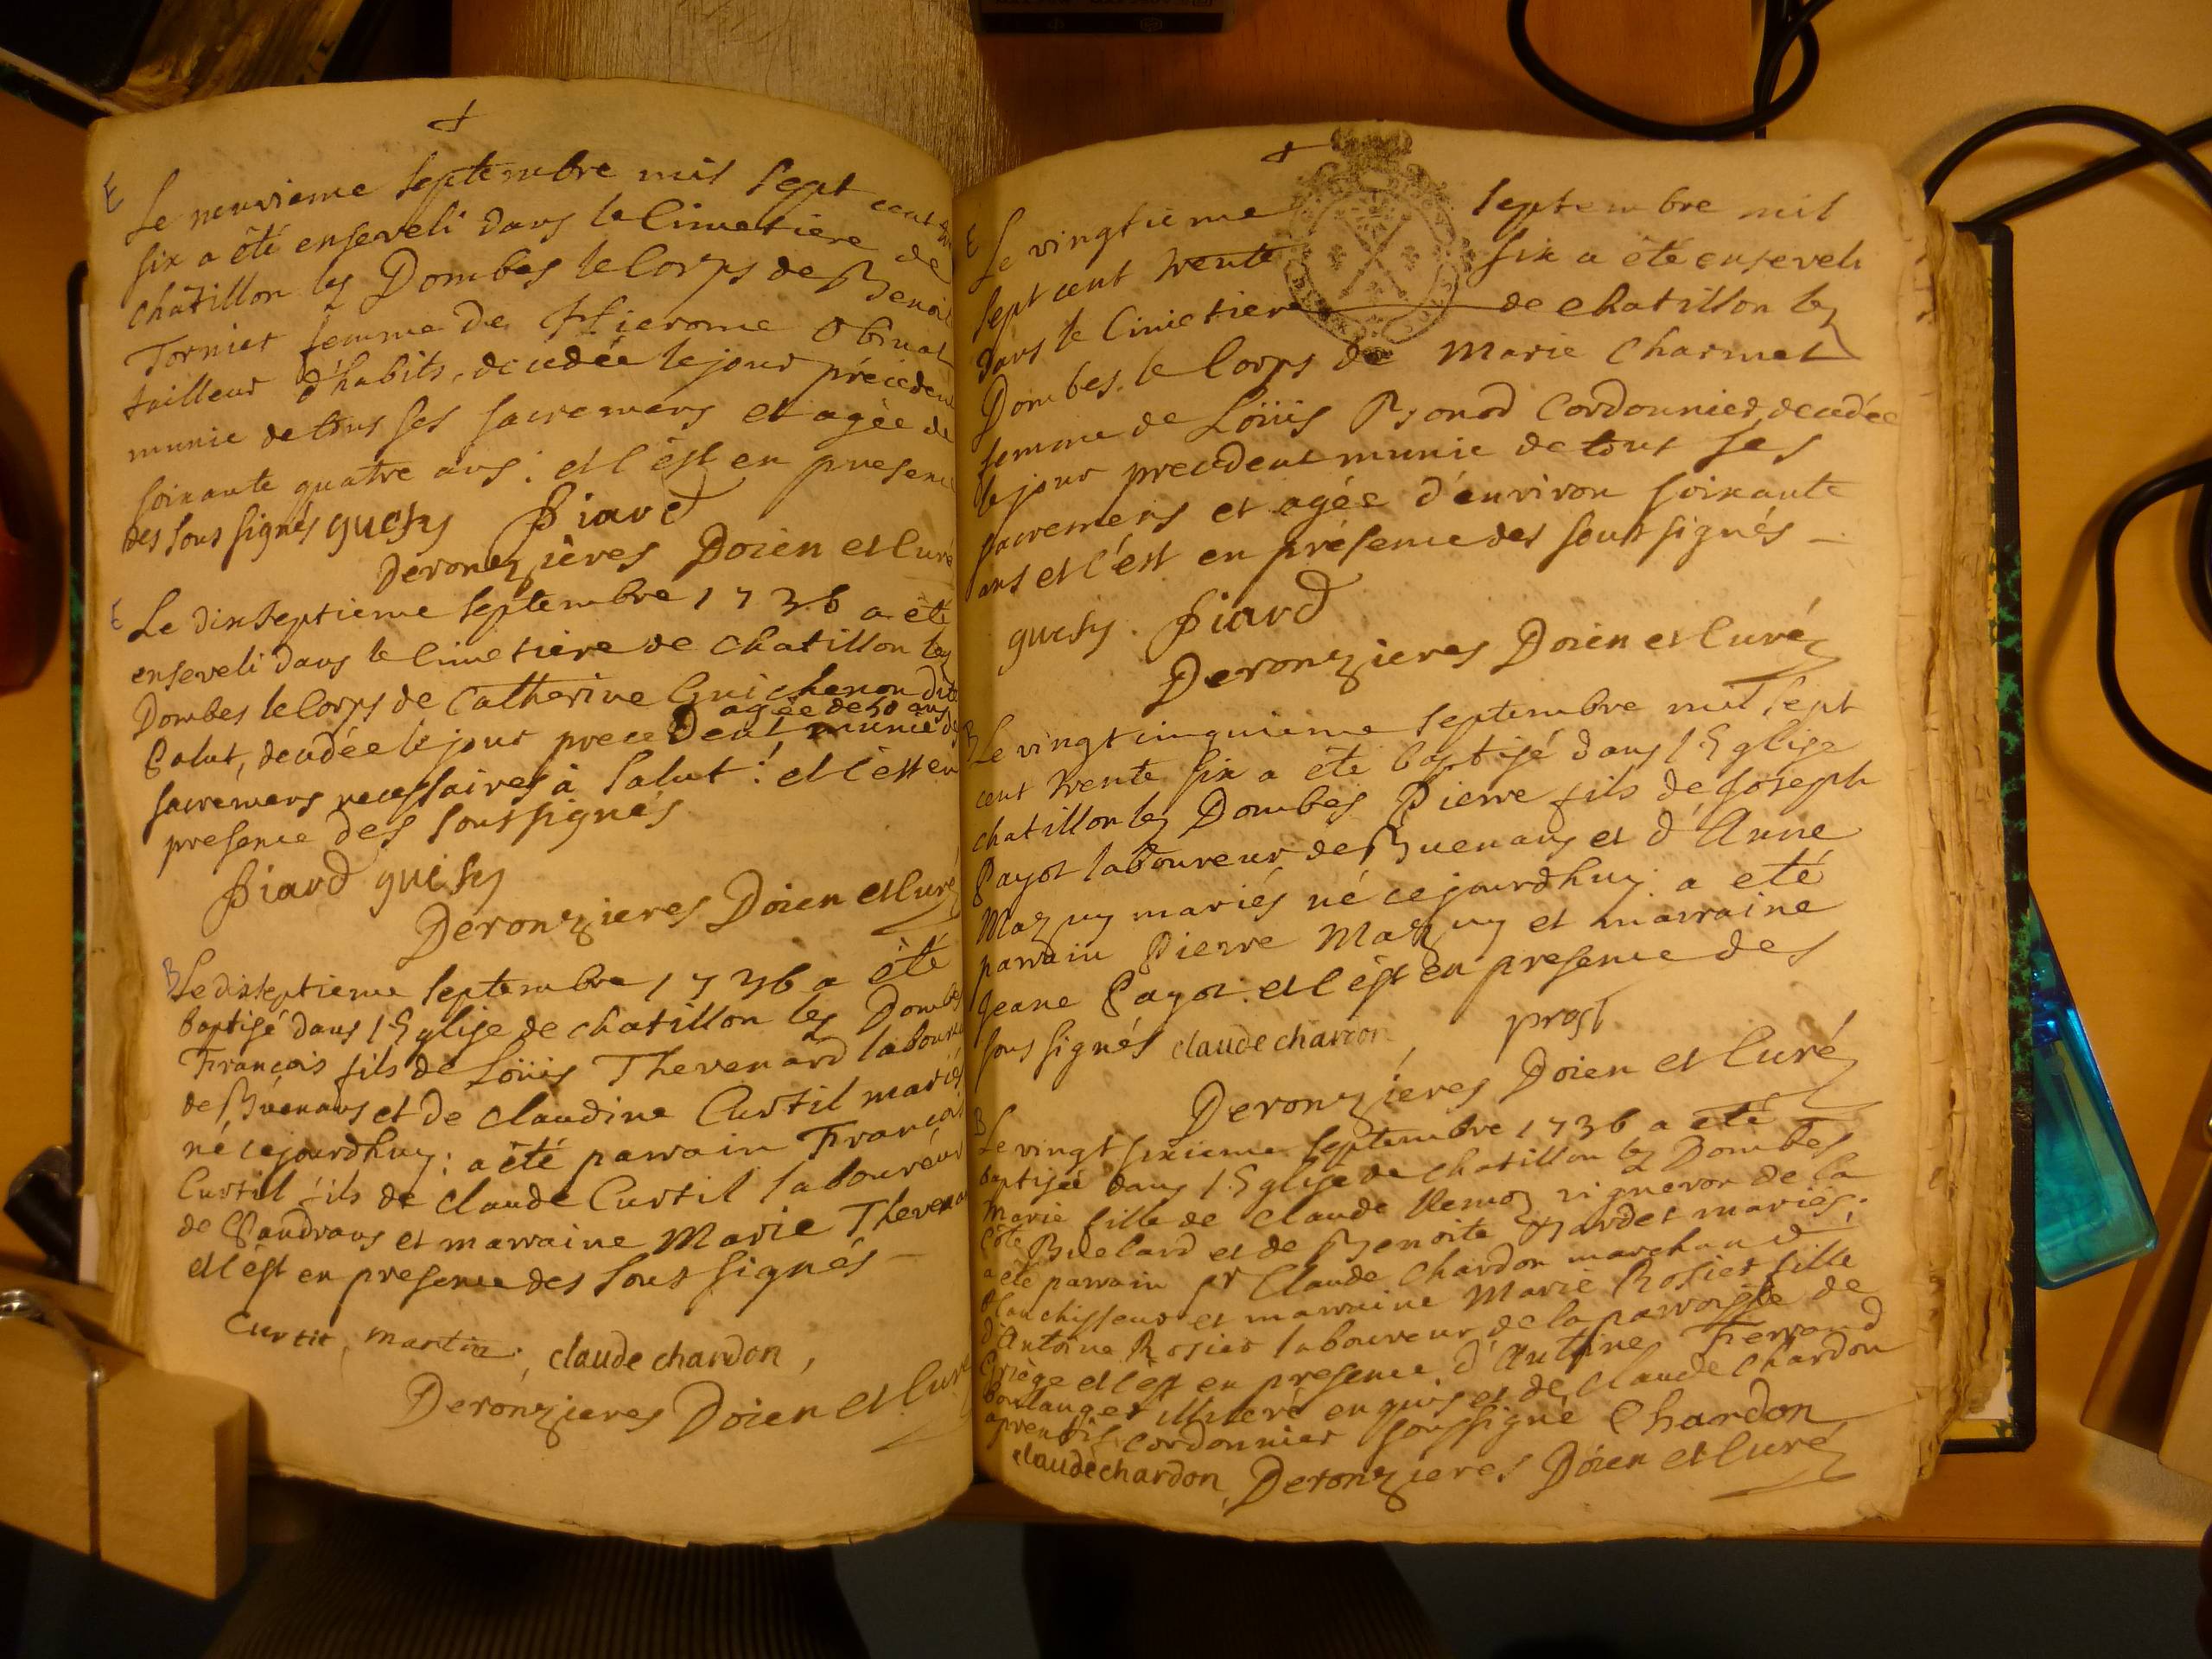 E
Le neuvieme septembre mil sept cent
six a êté enseveli dans le Cimetiere de
châtillon lez Dombes le Corps de Benoit
Tornier femme de Hierome Obinal
tailleur d'habits, decedée le jour précéden
munie de tous ses sacremens et agée de
soixante quatre ans; et c'est en presen
des sous signés guichy Piard
Deronzieres Doien et Curé
E
Le dixseptieme septembre 1736 a êté
enseveli dans le Cimetiere de chatillon lez
Dombes le Corps de Catherine Guichenon dite
agée de 50 ans
Palut, decedée le jour precedent munie de
sacremens necessaires à salut: et c'est en
presence des soussignés
Piard guichy
Deronzieres Doien et Curé
B
Le dixseptieme septembre 1736 a êté
baptisé dans l'Eglise de chatillon lez Dombes
François fils de Loüis Thevenard laboure
de Buenans et de claudine Curtil mariés
né cejourdhuy; a êté parrain François
Curtil fils de claude Curtil laboureur
de Sandrans et marraine Marie Thevenar
et c'est en presence des sous signés
Curtil, martin, claude chardon,
Deronzieres Doien et Curé
E
Le vingtieme septembre mil
sept cent trente six a êté enseveli
dans le Cimetiere de chatillon lez
Dombes le Corps de Marie Charmet
femme de Loüis Bonod Cordonnier, decedée
le jour precedent munie de tous ses
sacremens et agée d'environ soixante
ans et c'est en présence des soussignés
guichy. Piard
Deronzieres Doien et Curé
B
Le vingt cinquieme septembre mil sept
cent trente six a êté baptisé dans l'Eglise
chatillon lez Dombes Pierre fils de Joseph
Payot laboureur de Buenans et d'Anne
Mazuy mariés né cejourdhuy. a eté
parrain Pierre Mazuy et marraine
Jeane Payot. et c'est en presence des
sous signés claude chardon, prost
Deronzieres Doien et Curé
B
Le vingt sixieme septembre 1736 a eté
baptisée dans l'Eglise de chatillon lez Dombes
Marie fille de claude Vemoz vigneron de la
Côte Buelard et de Benoite Bardet mariés;
a êté parrain pr Claude Chardon marchand
blanchisseur et marraine Marie Rosier fille
d'Antoine Rosier laboureur de la parroisse de
Griège et c'est en presence d'Antoine Ferrand
boulanger illiteré enquis et de Claude Chardon
aprentis cordonnier soussigné Chardon
claude chardon, Deronzieres Doien et Curé